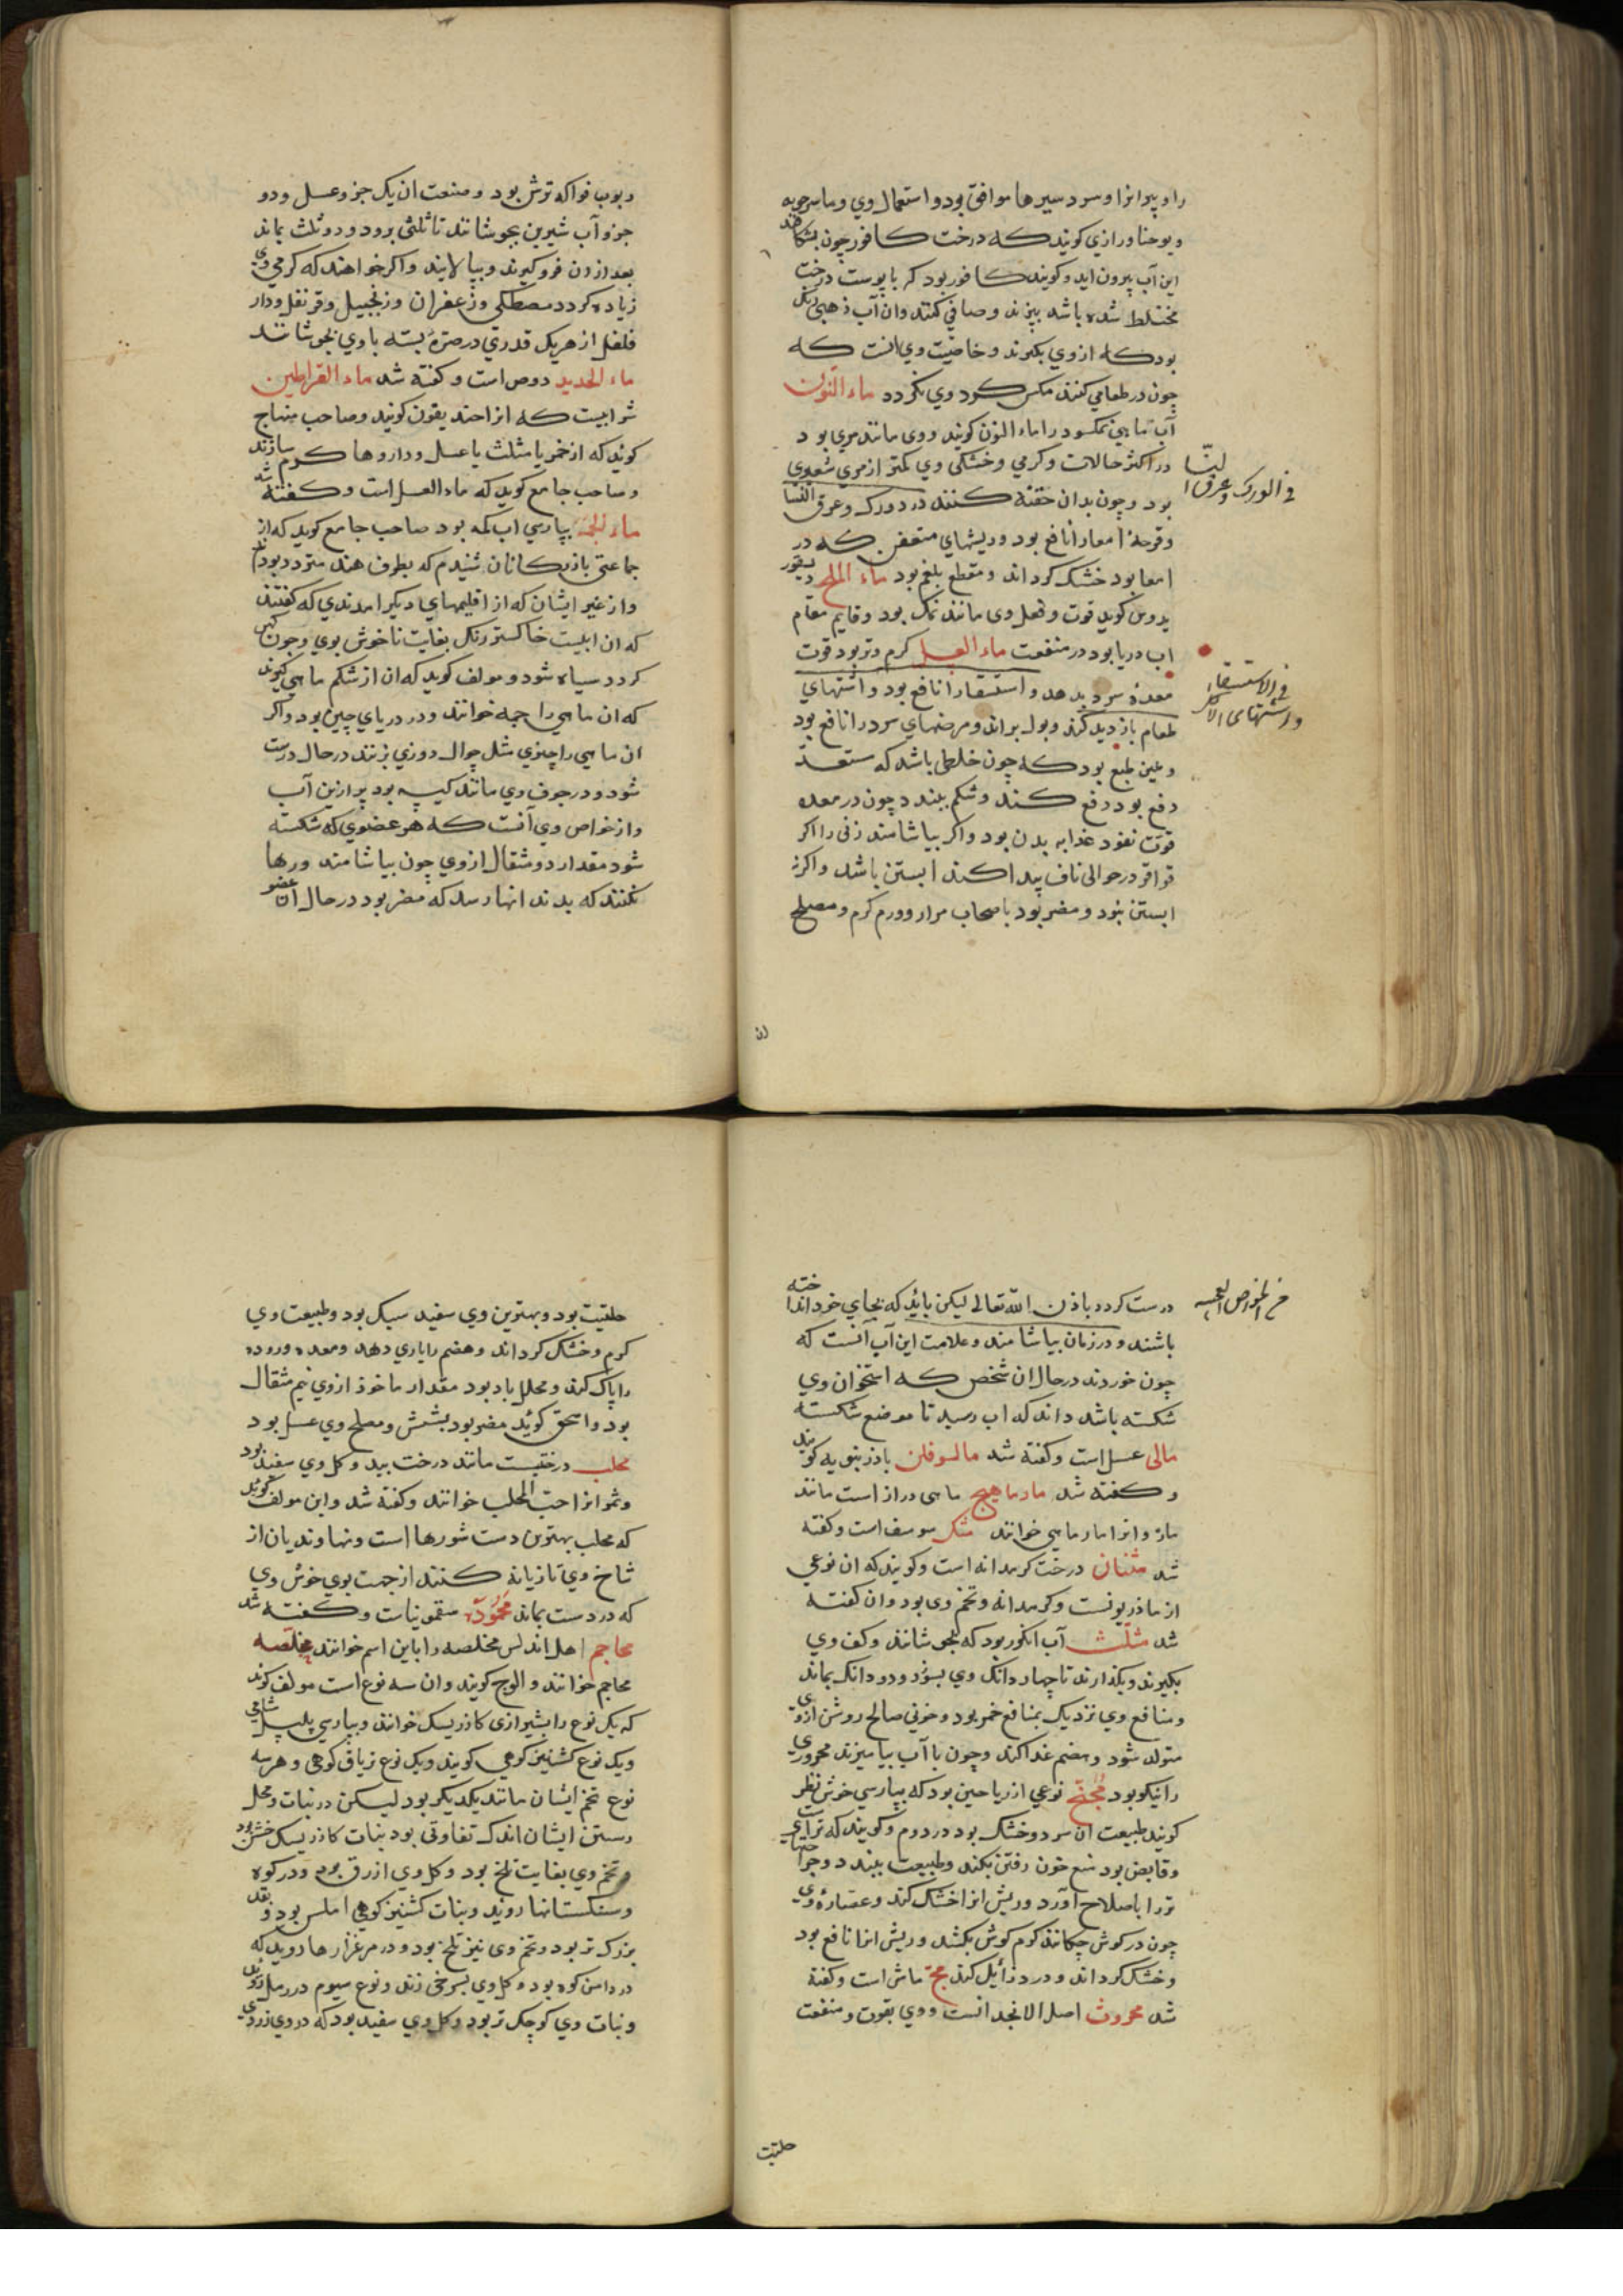 را و پیرانرا و سرد سیرها موافق بود و استعمال وی و ماسرجویه
و یوحنا و رازی کویند که درخت کافور چون بشکافند
این آب بیرون اید و کویند کافور بود که با پوست درخت
مختلط شده باشد بپزند و صافی کنند وان آب ذهبی رنک
بود که از وی بکیرند و خاصیت وی انست که
چون در طعامی کنند مکس کرد وی نکردد ماء النون
آب ماهی نمکسود را ماء النون کویند و وی مانند مری بود
در اکثر حالات و کرمی و خشکی وی کمتر از مری شعیری
بود و چون بدان حقنه کنند درد ورک و عرق النسا
و قرحهٔ امعا را نافع بود و ریشهای متعفن که در
امعا بود خشک کرداند و مقطع بلغم بود ماء الملح دیسقور
یدوس کوید قوت و فعل وی مانند نمک بود و قایم مقام
اب دریا بود در منفعت ماء العسل کرم و تر بود قوت
معدهٔ سرد بدهد و استسقا را نافع بود و اشتهای
طعام بازدید کند و بول براند و مرضهای سرد را نافع بود
و ملین طبع بود که چون خلطی باشد که مستعد
دفع بود دفع کند و شکم ببندد چون در معده
قوت نفوذ غذا به بدن بود واکر بیاشامند زنی را اکر
قراقر در حوالی ناف پیدا کند ابستن باشد و اکرنه
ابستن نبود و مضر بود باصحاب مرار و ورم کرم و مصلح
فی الورک و عرق النسا
فی الاستسقاء
و اشتهای الاکل
ربوب فواکه ترش بود و صنعت ان یک جزو عسل و دو
جزو آب شیرین بجوشانند تا ثلثی برود و دو ثلث بماند
بعد ازان فرو کیرند و بپالایند و اکر خواهند که کرمی وی
زیاده کردد مصطکی و زعفران و زنجبیل و قرنفل و دار
فلفل از هر یک قدری در صرّهٔ بسته با وی بجوشانند
ماء الحدید دوص است و کفته شد ماء القراطین
شرابیست که انرا حندیقون کویند و صاحب منهاج
کوید که از خمر یا مثلث با عسل و داروها کرم سازند
و صاحب جامع کوید که ماء العسل است و کفته شد
ماء الجمه بپارسی اب کمه بود صاحب جامع کوید که از
جماعتی بازرکانان شنیدم که بطرف هند متردد بودند
و از غیر ایشان که از اقلیمهای دیکر امدندی که کفتند
که ان ابیست خاکستر رنک بغایت ناخوش بوی و چون کهن
کردد سیاه شود و مولف کوید که ان از شکم ماهی کیرند
که ان ماهی را جمه خوانند و در دریای چین بود و اکر
ان ماهی را چیزی مثل جوال دوزی بزنند در حال درست
شود و در جوف وی مانند کیسه بود پر ازین آب
و از خواص وی آنست که هر عضوی که شکسته
شود مقدار دو مثقال از وی چون بیاشامند و رها
نکنند که بدندانها رسد که مضر بود در حال ان عضو
درست کردد باذن الله تعالی لیکن باید که بجای خود انداخته
باشند و در زمان بیاشامند و علامت این آب آنست که
چون خوردند در حال ان شخص که استخوان وی
شکسته باشد داند که اب رسید تا موضع شکسته
مالی عسل است و کفته شد مالسوفلن بادرنبویه کویند
و کفته شد مارماهیج ماهی دراز است مانند
مار و انرا مار ماهی خوانند مثک سوسف است و کفته
شد مثنان درخت کرمدانه است و کویند که ان نوعی
از ماذریونست و کرمدانه و تخم وی بود و ان کفته
شد مثلّث آب انکور بود که بجوشانند و کف وی
بکیرند و بکذارند تا چهار دانک وی بسوزد و دو دانک بماند
و منافع وی نزدیک بمنافع خمر بود و خونی صالح روشن از وی
متولد شود و هضم غذا کند و چون با آب بیامیزند محروری
را نیکو بود مجّنح نوعی از ریاحین بود که بپارسی خوش نظر
کویند طبیعت ان سرد و خشک بود در دوم و کویند که تر است
و قابض بود منع خون رفتن بکند و طبیعت ببندد و جراحتهای
تر را باصلاح آورد و ریش انرا خشک کند و عصارهٔ وی
چون در کوش چکانند کرم کوش بکشد و ریش انرا نافع بود
و خشک کرداند و درد زایل کند مج ماش است و کفته
شد محروث اصل الانجدانست و وی بقوت و منفعت
حلتیت
حلتیت بود و بهترین وی سفید سبک بود و طبیعت وی
کرم و خشک کرداند و هضم را یاری دهد و معده و روده
را پاک کند و محلل باد بود مقدار ماخوذ از وی نیم مثقال
بود و اسحق کوید مضر بود بشش و مصلح وی عسل بود
محلب درختیست مانند درخت بید و کل وی سفید بود
و ثمر انرا حبّ المحلب خوانند و کفته شد و این مولف کوید
که محلب بهترین دست شورها است و نهاوندیان از
شاخ وی تازیانه کنند از جهت بوی خوش وی
که در دست بماند محموده سقمونیات و کفته شد
محاجم اهل اندلس مخلصه را باین اسم خوانند مخلصه
محاجم خوانند و الوج کویند وان سه نوع است مولف کوید
که یک نوع را بشیرازی کاذریسک خوانند و بپارسی پلپل شامی
و یک نوع کشنیز کوهی کویند و یک نوع تریاق کوهی و هر سه
نوع تخم ایشان مانند یکدیکر بود لیکن در نبات و محل
رستن ایشان اندک تفاوتی بود نبات کاذریسک خشن بود
و تخم وی بغایت تلخ بود و کل وی ازرق بود و در کوه
و سنکستانها روید و نبات کشنیز کوهی املس بود و بقد
بزرک تر بود و تخم وی نیز تلخ بود و در مرغزارها روید که
در دامن کوه بود و کل وی بسرخی زند و نوع سیوم در رمل روید
و نبات وی کوچک تر بود و کل وی سفید بود که در وی زردی